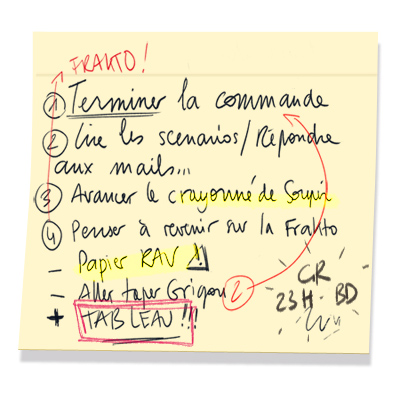 FRAKTO!
1 Terminer la commande
2 Lire les scenarios/Répondre
aux mails...
3 Avancer le crayonné de Soupir
4 Penser à revenir sur la Frakto
- Papier RAV !
- Aller taper Grigou 2
+ TABLEAU!!!
GR
23H · BD